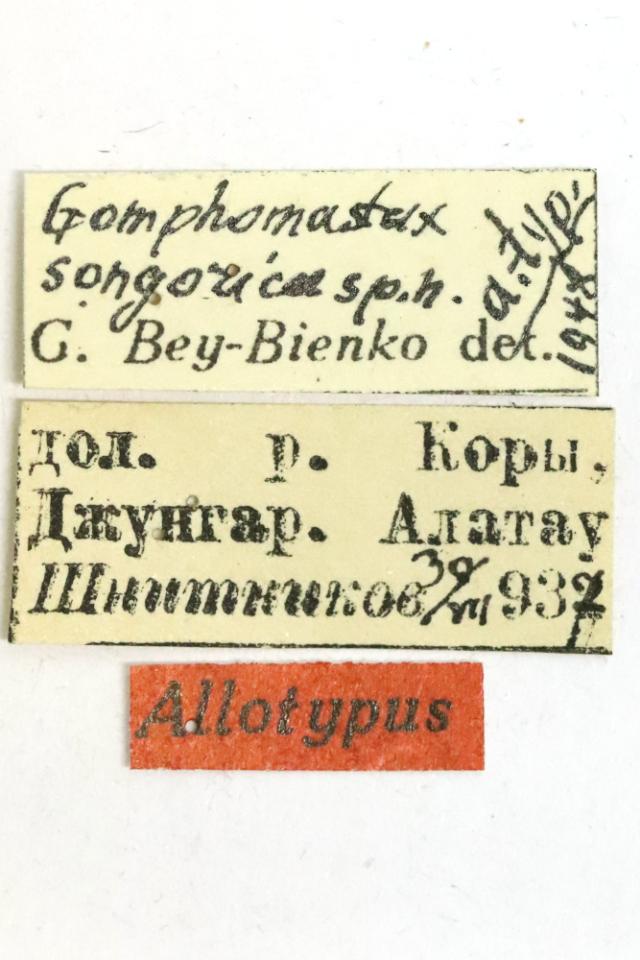 Gomphomastax
songorica sp.n.
a.typ.
G. Bey-Bienko det. 1948
дол. р. Коры,
Джунгар. Алатау
Шнитников 30/VII 937
Allotypus